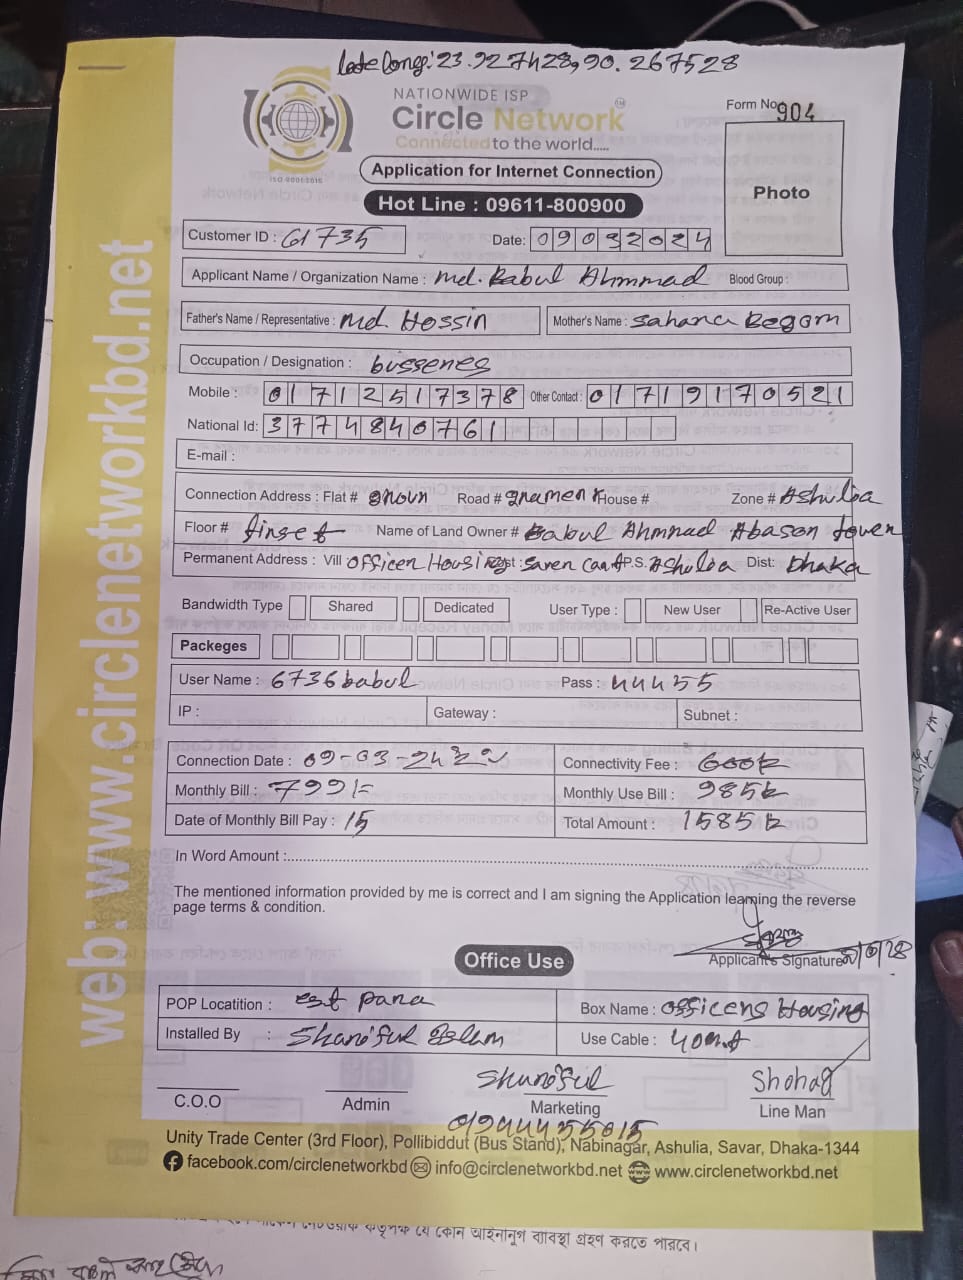 late long: 23.927428, 90.267528
NATIONWIDE ISP
Circle Network
Connected to the world.....
ISO 9001:2015
Form No. 904
Photo
Application for Internet Connection
Hot Line : 09611-800900
Customer ID : 61735 Date: 09032024
Applicant Name / Organization Name : Md. Babul Ahmmad Blood Group :
Father's Name / Representative : Md. Hossin Mother's Name : Sahana Begom
Occupation / Designation : bussenes
Mobile : 01712517378 Other Contact : 01719170521
National Id: 3774840761
E-mail :
Connection Address : Flat # Road # House # Zone # Ashulia
Floor # tinset Name of Land Owner # Babul Ahmmad Abason tower
Permanent Address : Vill officer Housing Post : Saver Cant P.S. Ashulia Dist: Dhaka
Bandwidth Type Shared Dedicated User Type : New User Re-Active User
Packeges
User Name : 6736babul Pass : 44455
IP : Gateway : Subnet :
Connection Date : 09-03-24 Connectivity Fee : 600tk
Monthly Bill : 799/= Monthly Use Bill : 985tk
Date of Monthly Bill Pay : 15 Total Amount : 1585tk
In Word Amount :
The mentioned information provided by me is correct and I am signing the Application learning the reverse
page terms & condition.
Applicant's Signature
Office Use
POP Locatition : est para Box Name : officers Housing
Installed By : Shariful Islam Use Cable : 40m
Shariful Shohag
C.O.O Admin Marketing Line Man
01944455615
Unity Trade Center (3rd Floor), Pollibiddut (Bus Stand), Nabinagar, Ashulia, Savar, Dhaka-1344
facebook.com/circlenetworkbd info@circlenetworkbd.net www.circlenetworkbd.net
web: www.circlenetworkbd.net
কর্তৃপক্ষ যে কোন আইনানুগ ব্যবস্থা গ্রহণ করতে পারবে।